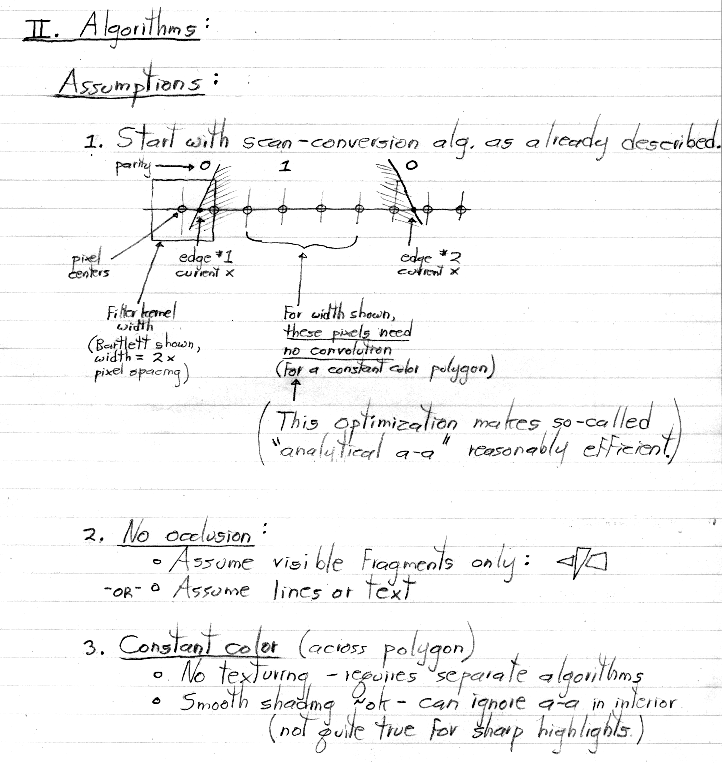 II. Algorithms:
Assumptions:
1. Start with scan-conversion alg. as already described.
parity → 0 1 0
pixel centers
edge #1 current x
edge #2 current x
Filter kernel width
(Bartlett shown,
width = 2 x
pixel spacing)
For width shown,
these pixels need
no convolution
(for a constant color polygon)
(This optimization makes so-called
"analytical a-a" reasonably efficient.)
2. No occlusion:
o Assume visible fragments only:
-OR- o Assume lines or text
3. Constant color (across polygon)
o No texturing - requires separate algorithms
o Smooth shading ~ok - can ignore a-a in interior
(not quite true for sharp highlights.)